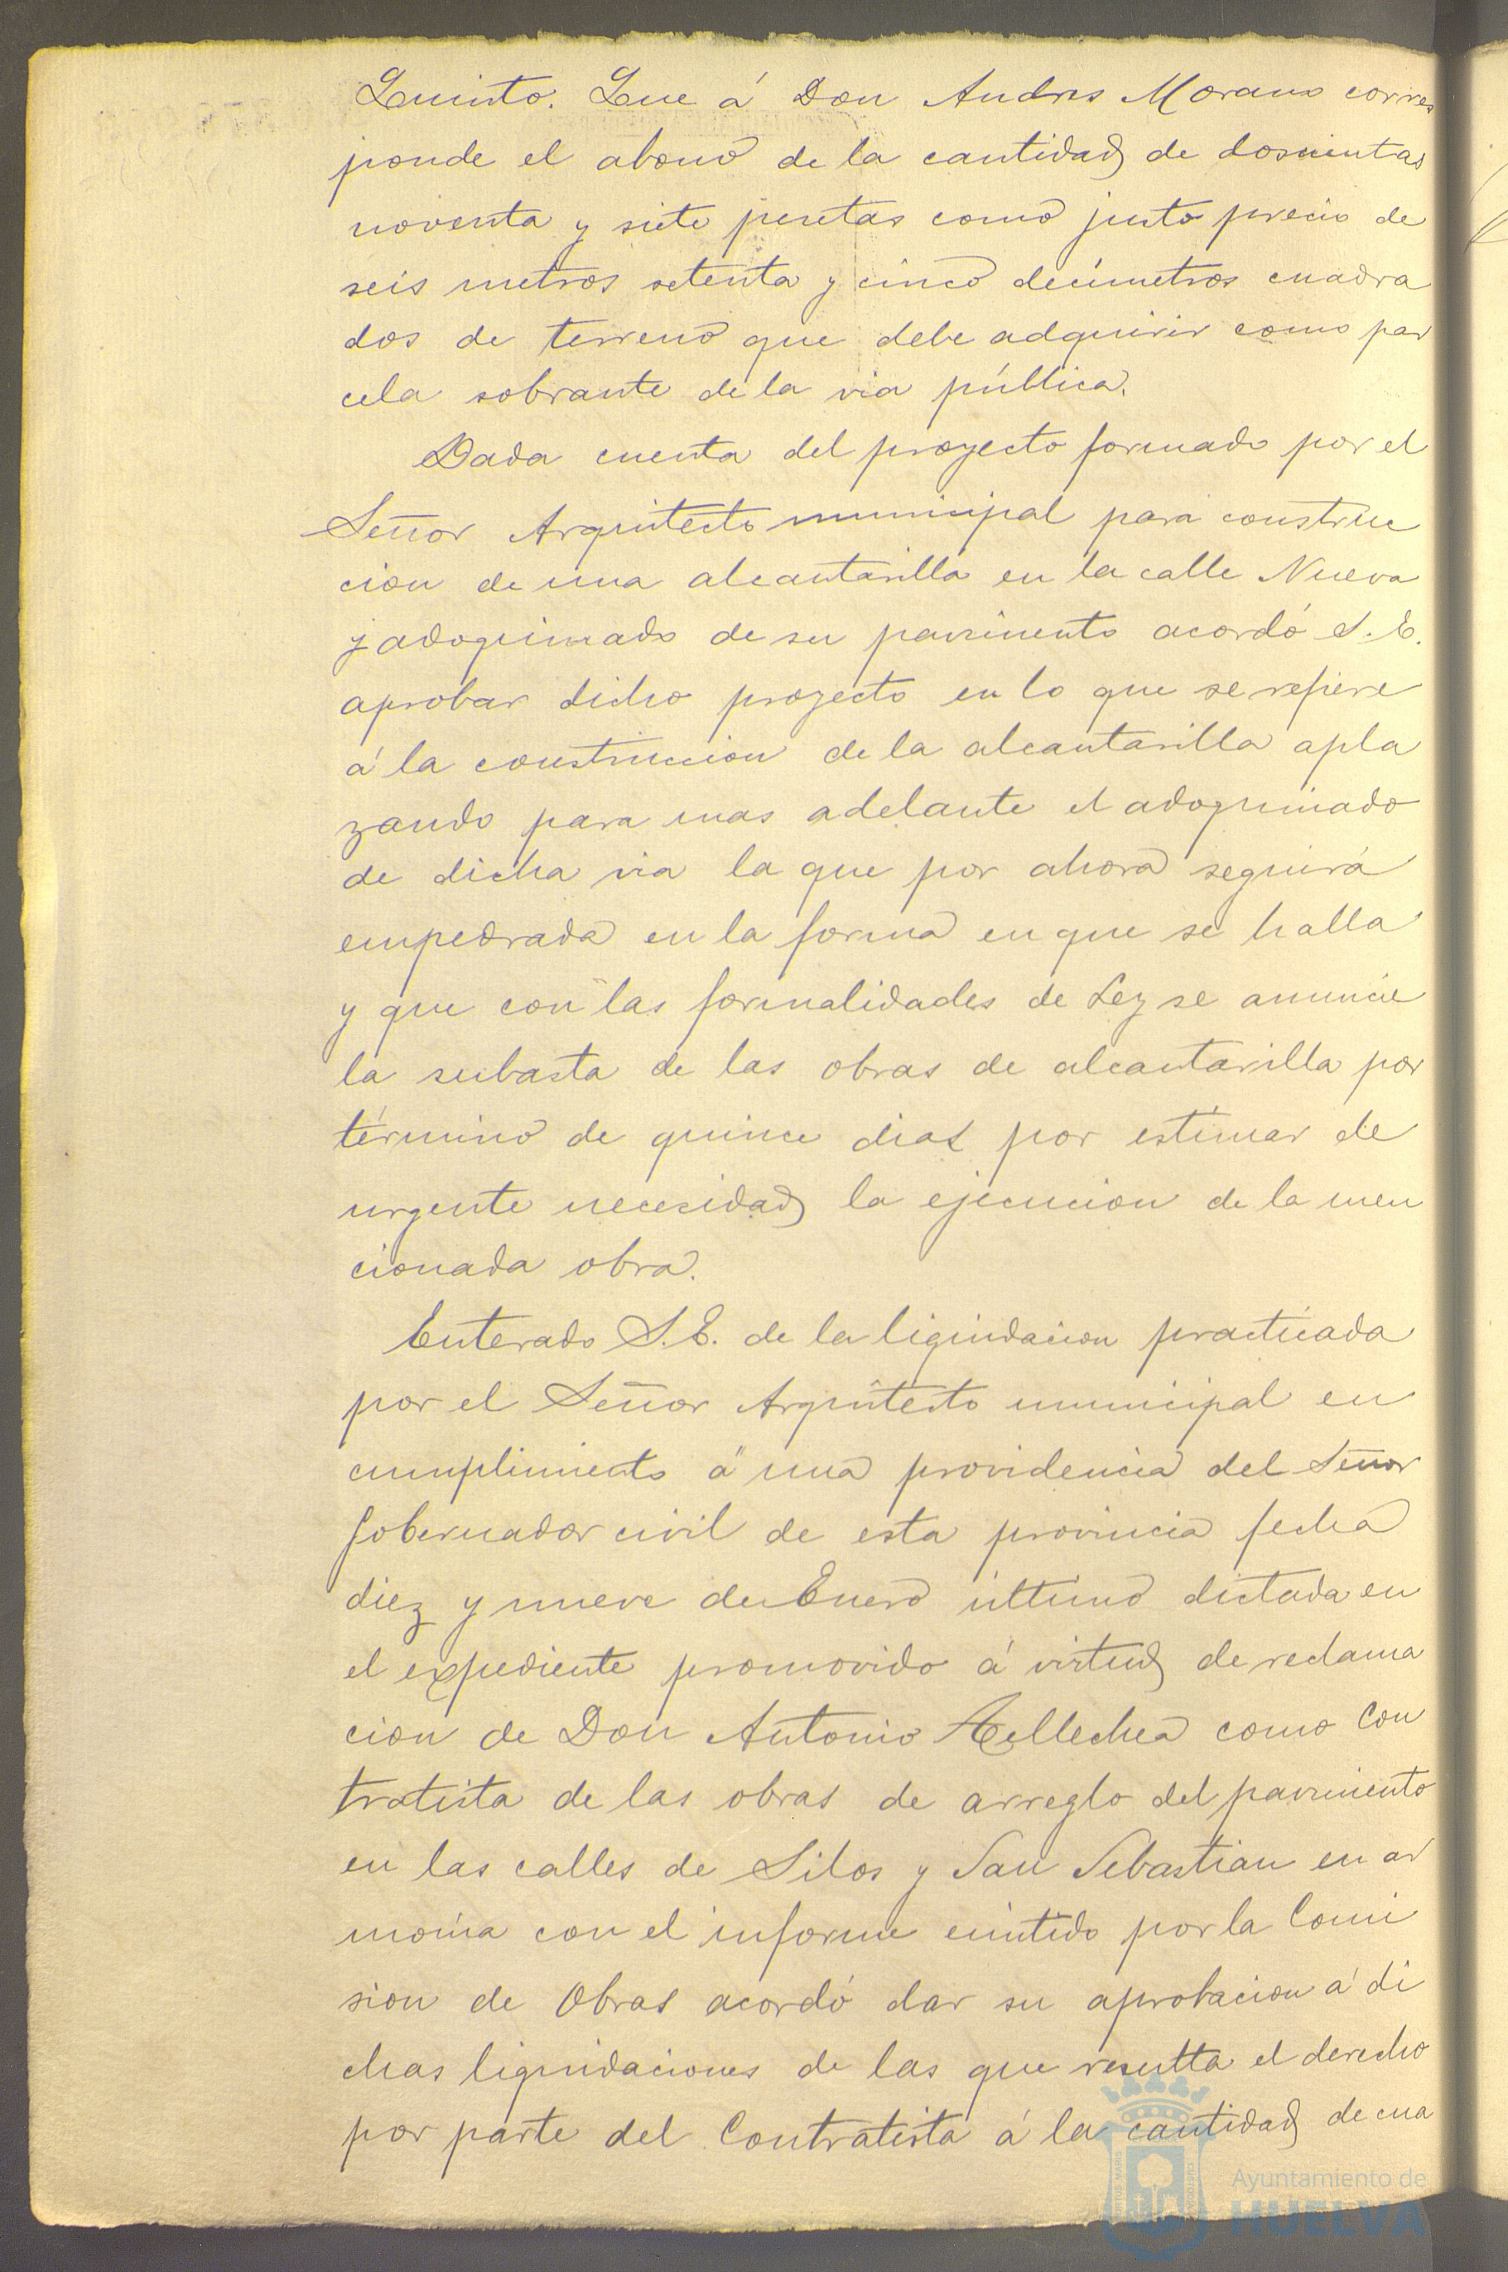 Quinto. Que á Don Andres Morano corres
ponde el abono de la cantidad de doscientas
noventa y siete pesetas como justo precio de
seis metros setenta y cinco decimetros cuadra
dos de terreno que debe adquirir como par
cela sobrante de la via pública.
Dada cuenta del proyecto formado por el
Señor Arquitecto municipal para construc
cion de una alcantarilla en la calle Nueva
y adoquinado de su pavimento acordó S. E.
aprobar dicho proyecto en lo que se refiere
á la construccion de la alcantarilla apla
zando para mas adelante el adoquinado
de dicha via la que por ahora seguirá
empedrada en la forma en que se halla
y que con las formalidades de Ley se anuncie
la subasta de las obras de alcantarilla por
término de quince dias por estimar de
urgente necesidad la ejecucion de la men
cionada obra.
Enterado S. E. de la liquidacion practicada
por el Señor Arquitecto municipal en
cumplimiento á una providencia del Señor
Gobernador civil de esta provincia fecha
diez y nueve de Enero último dictada en
el expediente promovido á virtud de reclama
cion de Don Antonio Tellechea como Con
tratista de las obras de arreglo del pavimento
en las calles de Silos y San Sebastian en ar
monia con el informe emitido por la Comi
sion de Obras acordó dar su aprobacion á di
chas liquidaciones de las que resulta el derecho
por parte del Contratista á la cantidad de cua
Ayuntamiento de
HUELVA